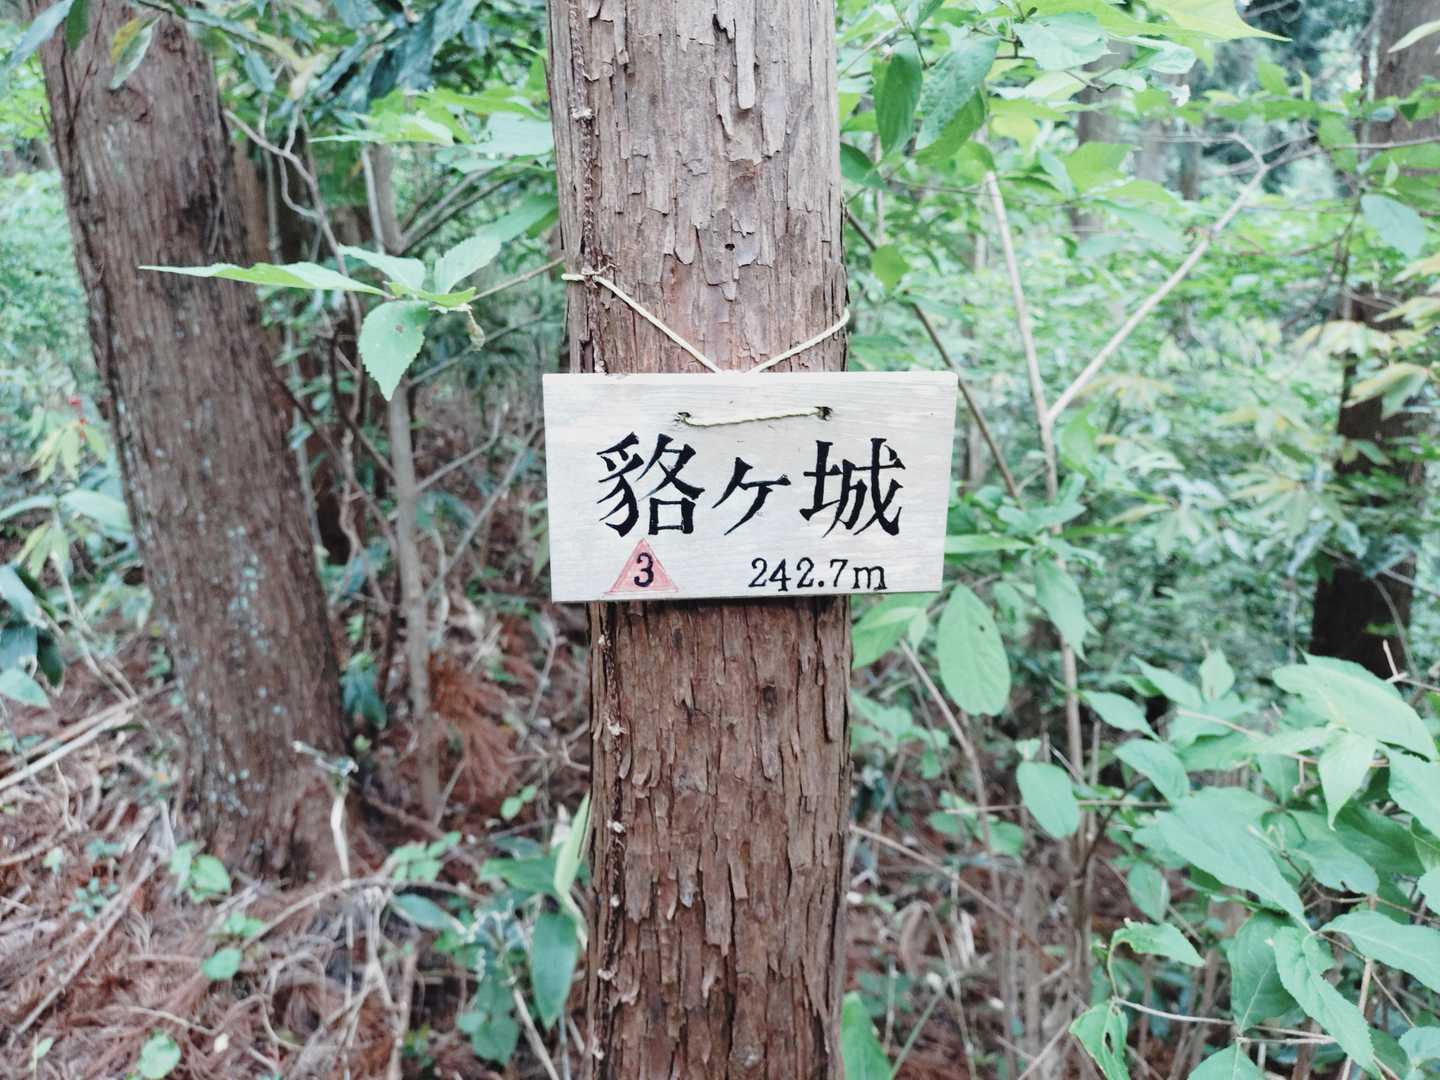 貉ヶ城
3 242.7m